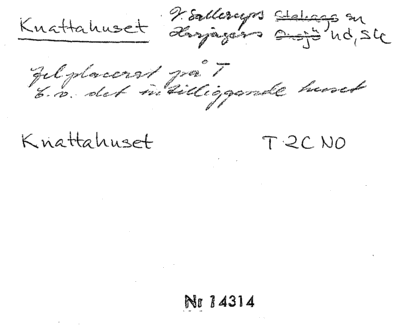 Knattahuset V. Sallerups Stehags sn
Harjagers Onsjö hd, Sk
Felplacerat på T
t.v. det intilliggande huset
Knattahuset T 2C NO
Nr 14314